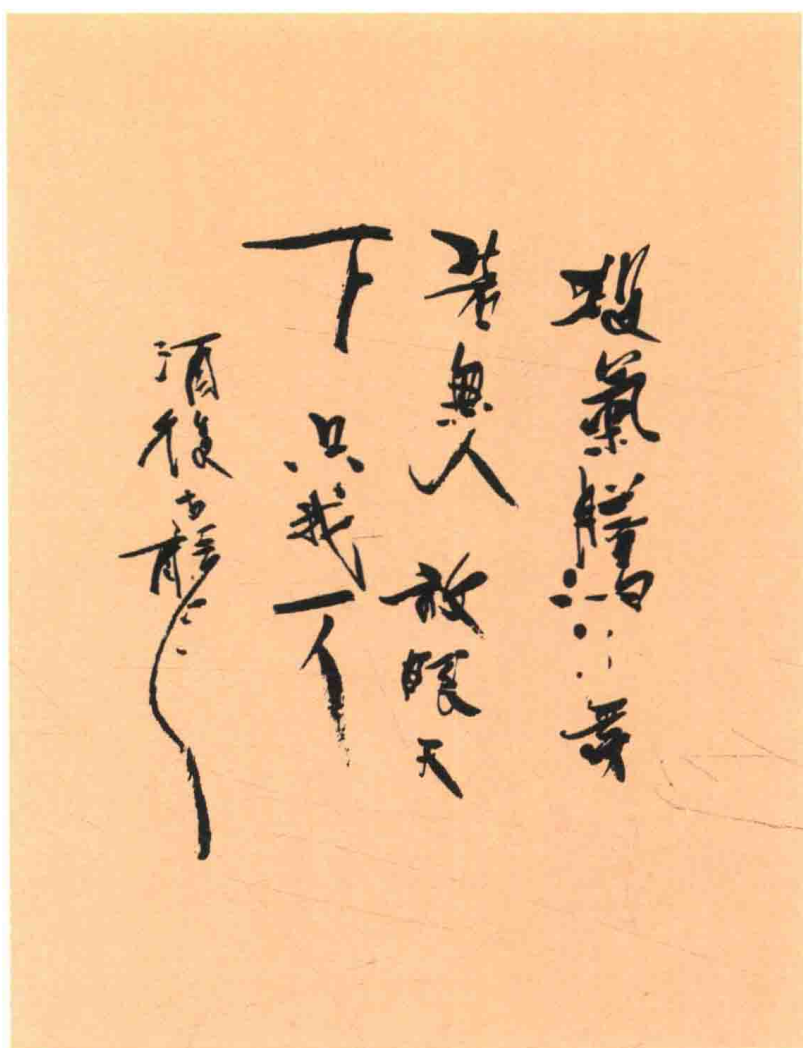 殺氣騰騰 旁
若無人 放眼天
下 只我一人
酒後古龍